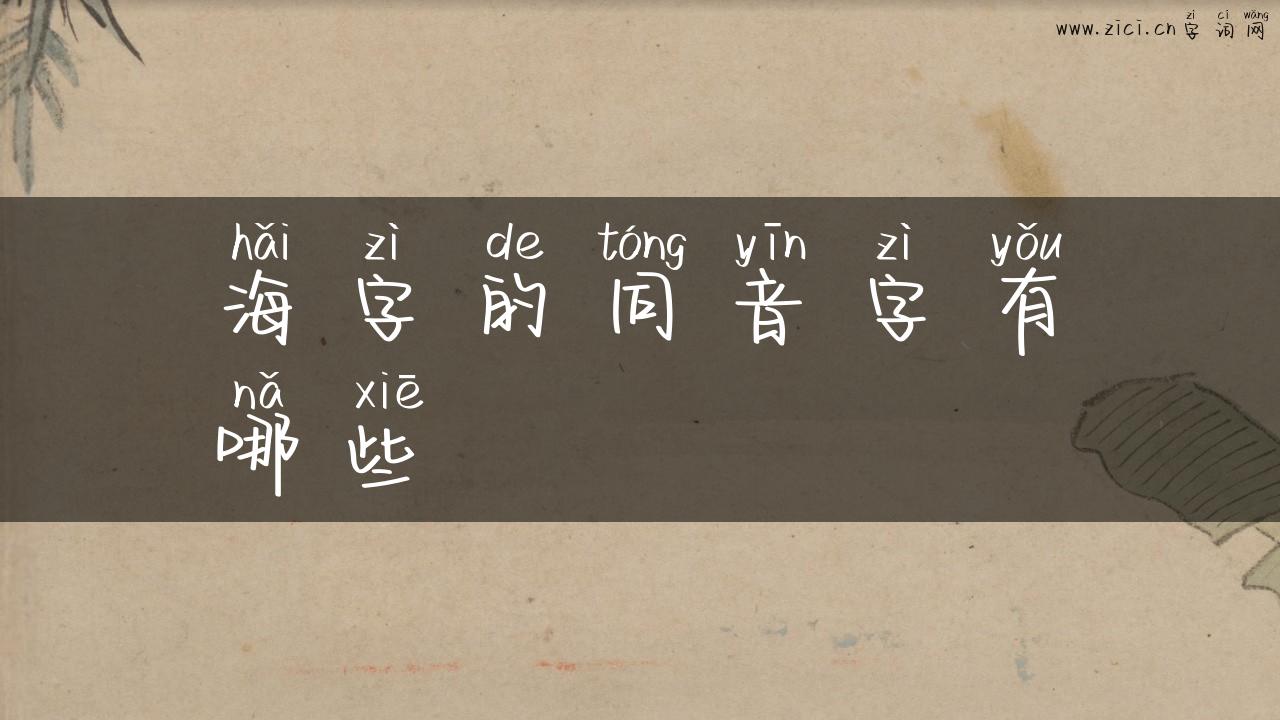 zì cí wǎng
www.zici.cn 字 词 网
hǎi zì de tóng yīn zì yǒu
海 字 的 同 音 字 有
nǎ xiē
哪 些